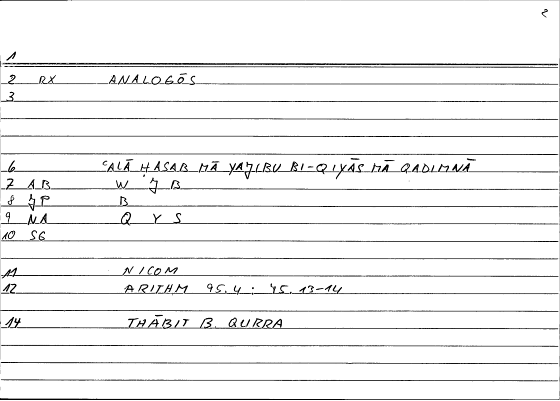 2
1
2 RX ANALOGŌS
3
6 ʿALĀ ḤASAB MĀ YAJIBU BI-QIYĀS MĀ QADIMNĀ
7 AB W J B
8 JP B
9 NA Q Y S
10 SG
11 NICOM
12 ARITHM 95.4 : 45.13-14
14 THĀBIT B. QURRA